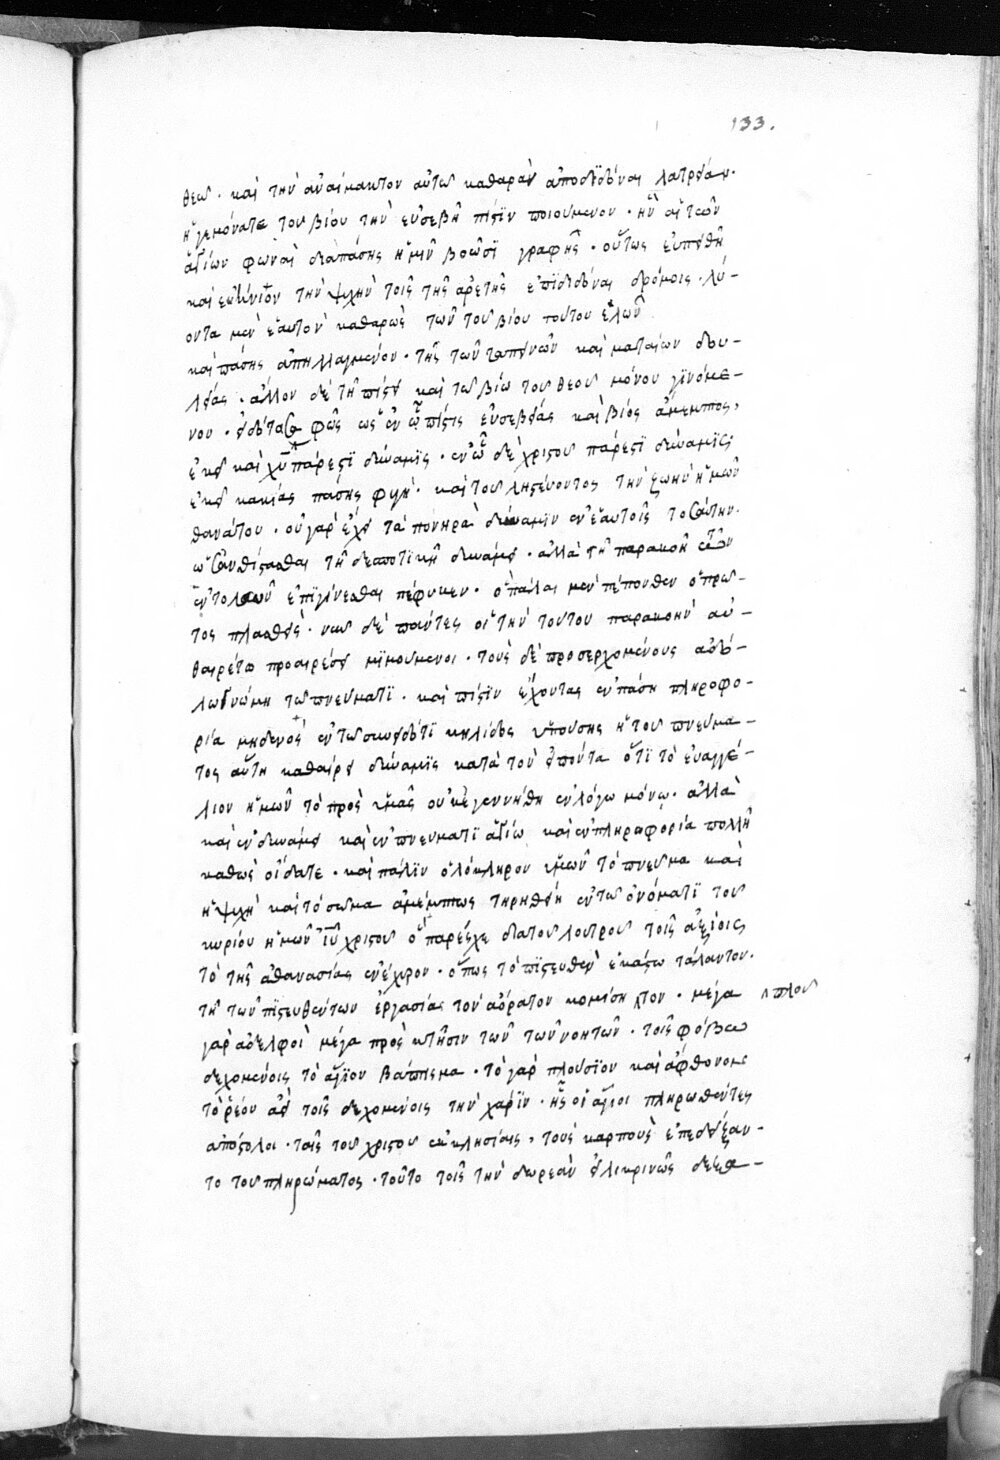 133.
θεῶ. καὶ τὴν ἀναίμακτον αὐτῶ καθαρὰν ἀποδϊδόναι λατρείαν.
ἡγεμόνα τε τοῦ βίου τὴν εὐσεβῆ πίστϊν ποιούμενον. ἣν αἱ τῶν
ἁγίων φωναὶ διαπάσης ἡμῖν βοῶσϊ γραφῆς. οὕτως εὐπειθῆ
καὶ εὐήνιον τὴν ψυχὴν τοῖς τῆς ἀρετῆς ἐπϊδιδόναι δρόμοις. λύ-
οντα μὲν ἑαυτὸν καθαρῶς τῶν τοῦ βίου τούτου
καὶ πάσης ἀπηλλαγμένον. τῆς τῶν ταπεινῶν καὶ ματαίων δου-
λείας. ὅλον δὲ τῆ πίστει καὶ τῶ βίω τοῦ θεοῦ μόνου γϊνόμε-
νον. εἰδότα φῶς ὡς ἐν ᾧ πίστις εὐσεβείας καὶ βίος ἄμεμπτος,
ἐκεῖ καὶ χυ πάρεστϊ δύναμϊς. ἐν ᾧ δὲ χριστοῦ πάρεστϊ δύναμϊς,
ἐκεῖ κακίας πάσης φυγή. καὶ τοῦ ληστεύοντος τὴν ζωὴν ἡμῶν
θανάτου. οὐ γὰρ ἔχει τὰ πονηρὰ δύναμϊν ἐν ἑαυτοῖς τοσαύτην.
ὡς ἀνθίστασθαι τῆ δεσποτϊκῆ δυνάμει. ἀλλὰ τῆ παρακοῆ τῶν
ἐντολῶν ἐπϊγίνεσθαι πέφυκεν. ὃ πάλαι μὲν πέπονθεν ὁ πρῶ-
τος πλασθείς. νῦν δὲ πάντες οἱ τὴν τούτου παρακοὴν αὐ-
θαιρέτω προαιρέσει μϊμούμενοι. τοὺς δὲ προσερχομένους ἀδό-
λω γνώμη τῶ πνεύματϊ. καὶ πίστϊν ἔχοντας ἐν πάση πληροφο-
ρία μηδενὸς ἐν τῶ συνειδότϊ κηλίδος ὑπούσης ἡ τοῦ πνεύμα-
τος αὕτη καθαίρει δύναμϊς κατὰ τὸν εἰπόντα ὅτϊ τὸ εὐαγγέ-
λιον ἡμῶν τὸ πρὸς ὑμᾶς οὐκ ἐγεννήθη ἐν λόγω μόνω. ἀλλὰ
καὶ ἐν δυνάμει καὶ ἐν πνεύματϊ ἁγίω καὶ ἐν πληροφορία πολλῆ
καθὼς οἴδατε. καὶ πάλϊν ὁλόκληρον ὑμῶν τὸ πνεῦμα καὶ
ἡ ψυχὴ καὶ τὸ σῶμα ἀμέμπτως τηρηθείη ἐν τῶ ὀνόματϊ τοῦ
κυρίου ἡμῶν ιῦ χριστοῦ ὃ παρέσχε διατοῦ λουτροῦ τοῖς ἀξίοις
τὸ τῆς ἀθανασίας ἐνέχυρον. ὅπως τὸ πϊστευθὲν ἑκάστω τάλαντον.
τῆ τῶν πϊστευθέντων ἐργασίας τὸν ἀόρατον κομίση πλοῦτον. μέγα
γὰρ ἀδελφοὶ μέγα πρὸς κτῆσιν τῶν τῶν νοητῶν. τοῖς φόβω
δεχομένοις τὸ ἅγϊον βάπτισμα. τὸ γὰρ πλούσϊον καὶ ἄφθονον
ἀεὶ τοῖς δεχομένοις τὴν χάρϊν. ἧς οἱ ἅγιοι πληρωθέντες
ἀπόστολοι. ταῖς τοῦ χριστοῦ ἐκκλησίαις, τοὺς καρποὺς ἐπεδείξαν-
το τοῦ πληρώματος. τοῦτο τοῖς τὴν δωρεὰν εἰλικρινῶς δεξα-